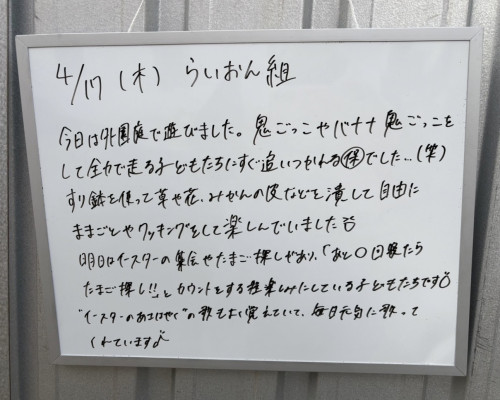 4/17 (木) らいおん組
今日は外園庭で遊びました。鬼ごっこやバナナ鬼ごっこを
して全力で走る子どもたちにすぐ追いつかれる㋭でした…(笑)
すり鉢を使って草や花、みかんの皮などを潰して自由に
ままごとやクッキングをして楽しんでいました
明日はイースターの集会やたまご探しがあり、「あと〇回寝たら
たまご探し!!」とカウントをする程楽しみにしている子どもたちです
"イースターのあさはやく"の歌もよく覚えていて、毎日元気に歌って
くれています♪